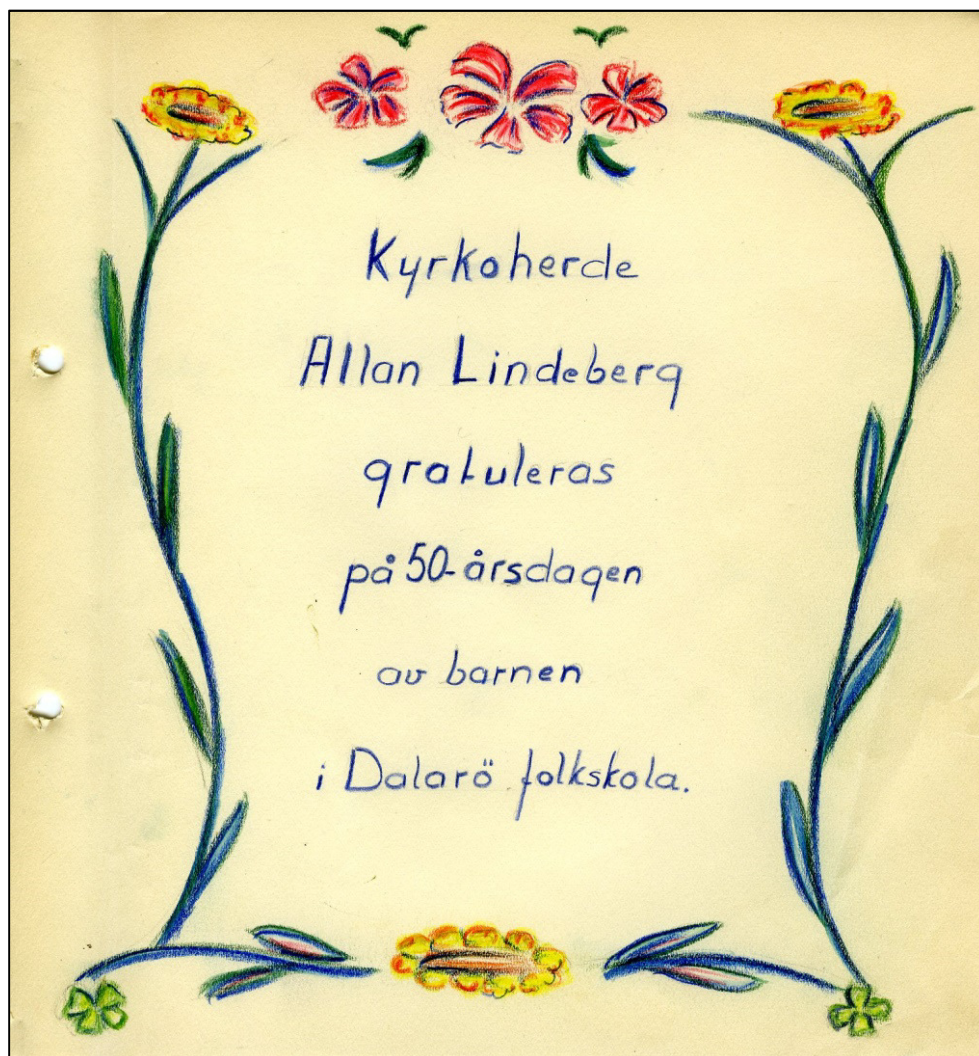 Kyrkoherde
Allan Lindeberg
gratuleras
på 50-årsdagen
av barnen
i Dalarö folkskola.